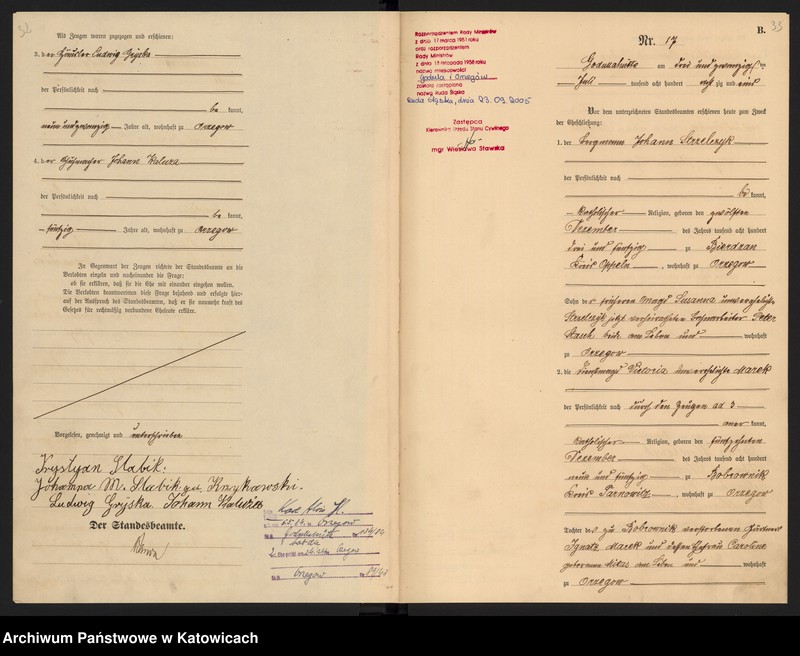 32
Als Zeugen waren zugezogen und erschienen:
3. der Häusler Ludwig Gryska
der Persönlichkeit nach
be kannt,
neun und zwanzig Jahre alt, wohnhaft zu Orzegow
4. der Johann Walecza
der Persönlichkeit nach
be kannt,
fünfzig Jahre alt, wohnhaft zu Orzegow
In Gegenwart der Zeugen richtete der Standesbeamte an die
Verlobten einzeln und nacheinander die Frage:
ob sie erklären, daß sie die Ehe mit einander eingehen wollen.
Die Verlobten beantworteten diese Frage bejahend und erfolgte hier-
auf der Ausspruch des Standesbeamten, daß er sie nunmehr kraft des
Gesetzes für rechtmäßig verbundene Eheleute erkläre.
Vorgelesen, genehmigt und unterschrieben
Krystyan Slabik.
Johanna M. Slabik geb. Krzykawski.
Ludwig Gryska Johann
Der Standesbeamte.
Karl Alois
Orzegow
Godullahütte
Orzegow
33
B.
Rozporządzeniem Rady Ministrów
z dnia 17 marca 1951 roku
oraz rozporządzeniem
Rady Ministrów
z dnia 18 listopada 1958 roku
nazwa miejscowości
Godula i Orzegów
została zastąpiona
nazwą Ruda Śląska
Ruda Śląska, dnia 23.09.2005
Zastępca
Kierownika Urzędu Stanu Cywilnego
mgr Wiesława Stawska
Nr. 17
Godullahütte am drei und zwanzigsten
Juli tausend acht hundert acht zig und eins
Vor dem unterzeichneten Standesbeamten erschienen heute zum Zweck
der Eheschließung:
1. der Bergmann Johann Strzelczyk
der Persönlichkeit nach
be kannt,
katholischer Religion, geboren den zwölften
Dezember des Jahres tausend acht hundert
drei und fünfzig zu Bierdzan
Kreis Oppeln, wohnhaft zu Orzegow
Sohn der früheren Magd Susanna unverehelichte
Strzelczyk jetzt verheiratheten Peter
beide am Leben und wohnhaft
zu Orzegow
2. die Dienstmagd Victoria unverehelichte Marek
der Persönlichkeit nach durch den Zeugen ad 3
aner kannt,
katholischer Religion, geboren den fünfzehnten
Dezember des Jahres tausend acht hundert
neun und fünfzig zu Bobrownik
Kreis Tarnowitz, wohnhaft zu Orzegow
Tochter des zu Bobrownik verstorbenen Gärtners
Ignatz Marek und dessen Ehefrau Caroline
geborenen Mikas am Leben und wohnhaft
zu Orzegow
Archiwum Państwowe w Katowicach